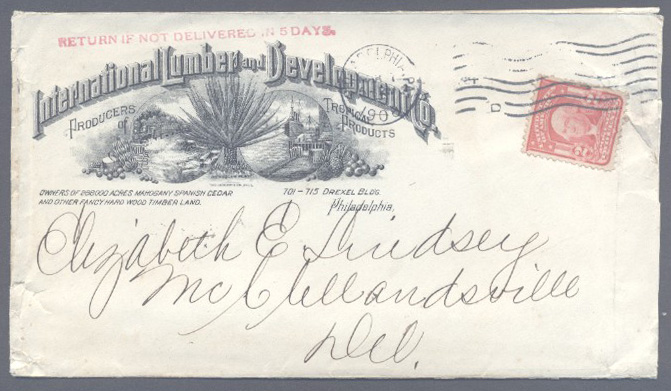 RETURN IF NOT DELIVERED IN 5 DAYS.
International Lumber and Development Co.
PRODUCERS of
TROPICAL PRODUCTS
OWNERS OF 288000 ACRES MAHOGANY SPANISH CEDAR
AND OTHER FANCY HARD WOOD TIMBER LAND.
701-715 DREXEL BLDG.
Philadelphia,
Elizabeth E Lindsey
McClellandsville
Del.